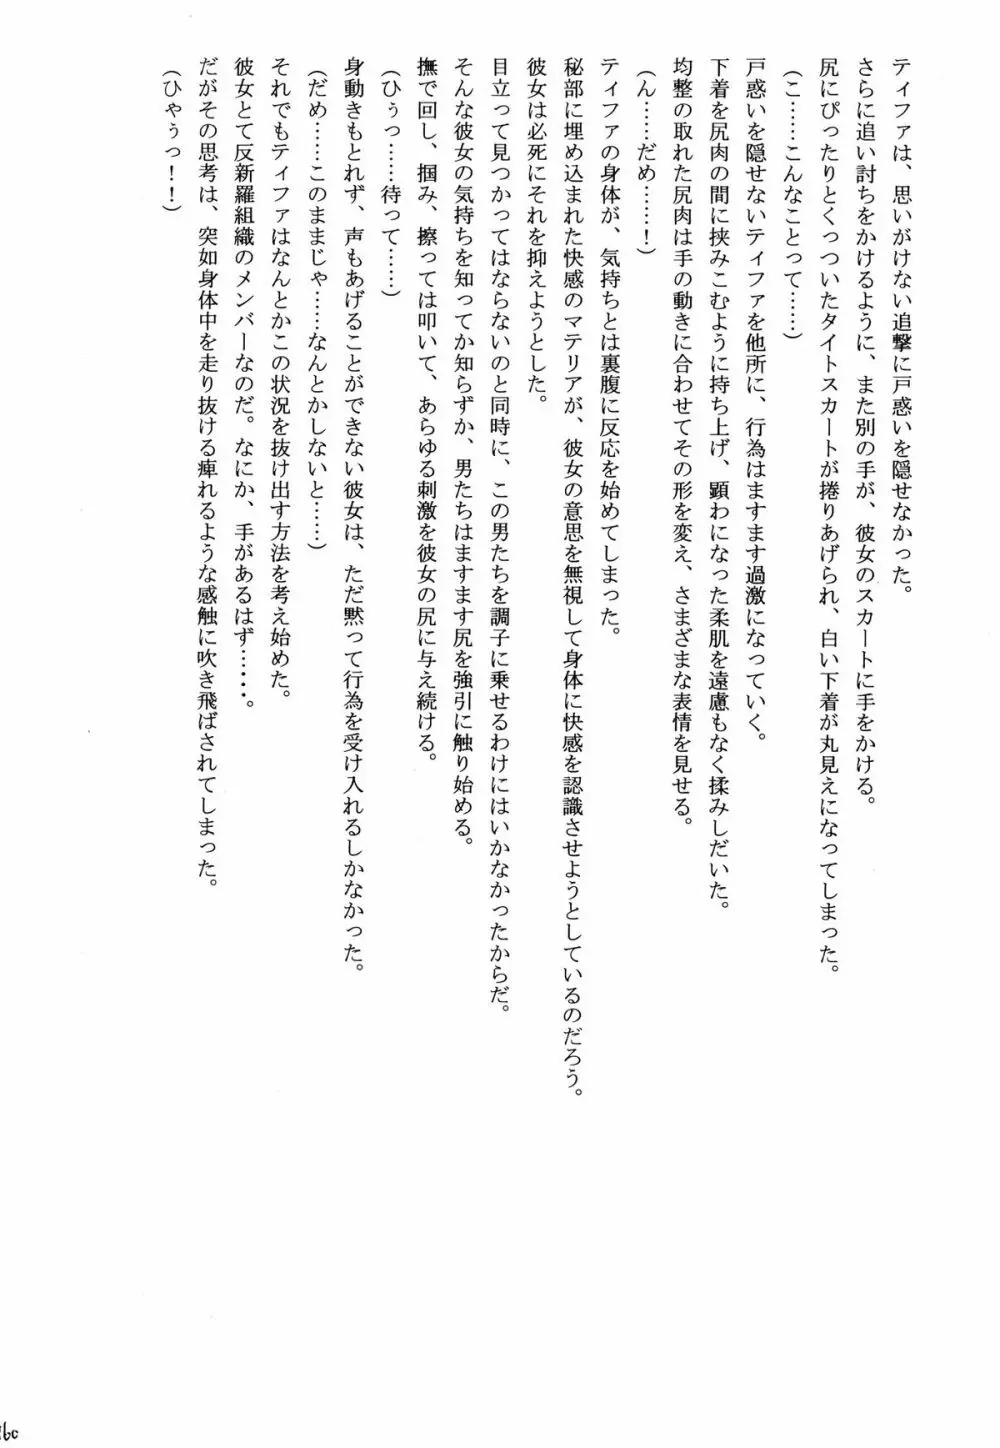 ティファは、思いがけない追撃に戸惑いを隠せなかった。
さらに追い討ちをかけるように、また別の手が、彼女のスカートに手をかける。
尻にぴったりとくっついたタイトスカートが捲りあげられ、白い下着が丸見えになってしまった。
(こ……こんなことって……)
戸惑いを隠せないティファを他所に、行為はますます過激になっていく。
下着を尻肉の間に挟みこむように持ち上げ、顕わになった柔肌を遠慮もなく揉みしだいた。
均整の取れた尻肉は手の動きに合わせてその形を変え、さまざまな表情を見せる。
(ん……だめ……！)
ティファの身体が、気持ちとは裏腹に反応を始めてしまった。
秘部に埋め込まれた快感のマテリアが、彼女の意思を無視して身体に快感を認識させようとしているのだろう。
彼女は必死にそれを抑えようとした。
目立って見つかってはならないのと同時に、この男たちを調子に乗せるわけにはいかなかったからだ。
そんな彼女の気持ちを知ってか知らずか、男たちはますます尻を強引に触り始める。
撫で回し、掴み、擦っては叩いて、あらゆる刺激を彼女の尻に与え続ける。
(ひぅっ……待って……)
身動きもとれず、声もあげることができない彼女は、ただ黙って行為を受け入れるしかなかった。
(だめ……このままじゃ……なんとかしないと……)
それでもティファはなんとかこの状況を抜け出す方法を考え始めた。
彼女とて反新羅組織のメンバーなのだ。なにか、手があるはず……。
だがその思考は、突如身体中を走り抜ける痺れるような感触に吹き飛ばされてしまった。
(ひゃぅっ！！)